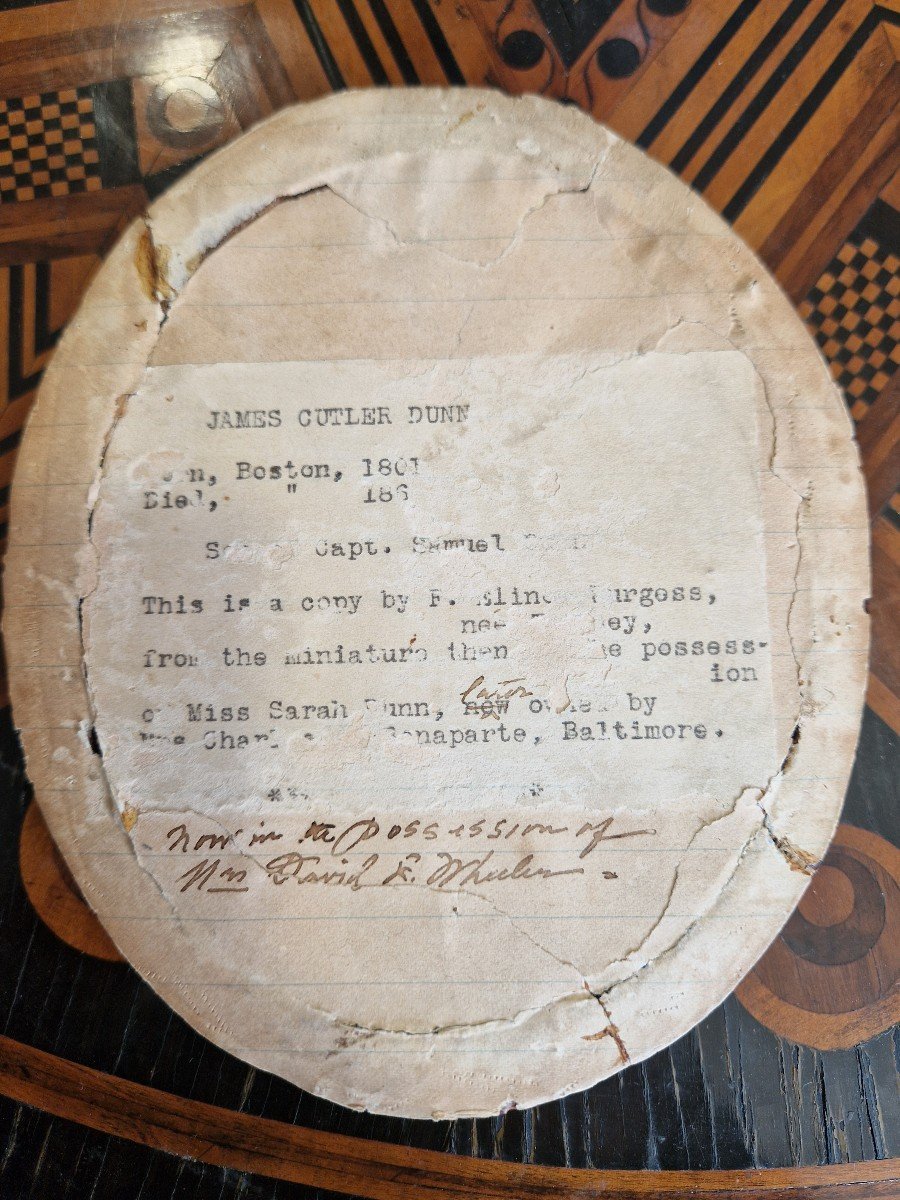 JAMES CUTLER DUNN
Boston, 1801
Died, " 186
Capt. Samuel
This is a copy by
nee
from the miniature then possess-
ion
of Miss Sarah Dunn, later now owned by
Bonaparte, Baltimore.
Now in the possession of
Mrs David L. Wheeler